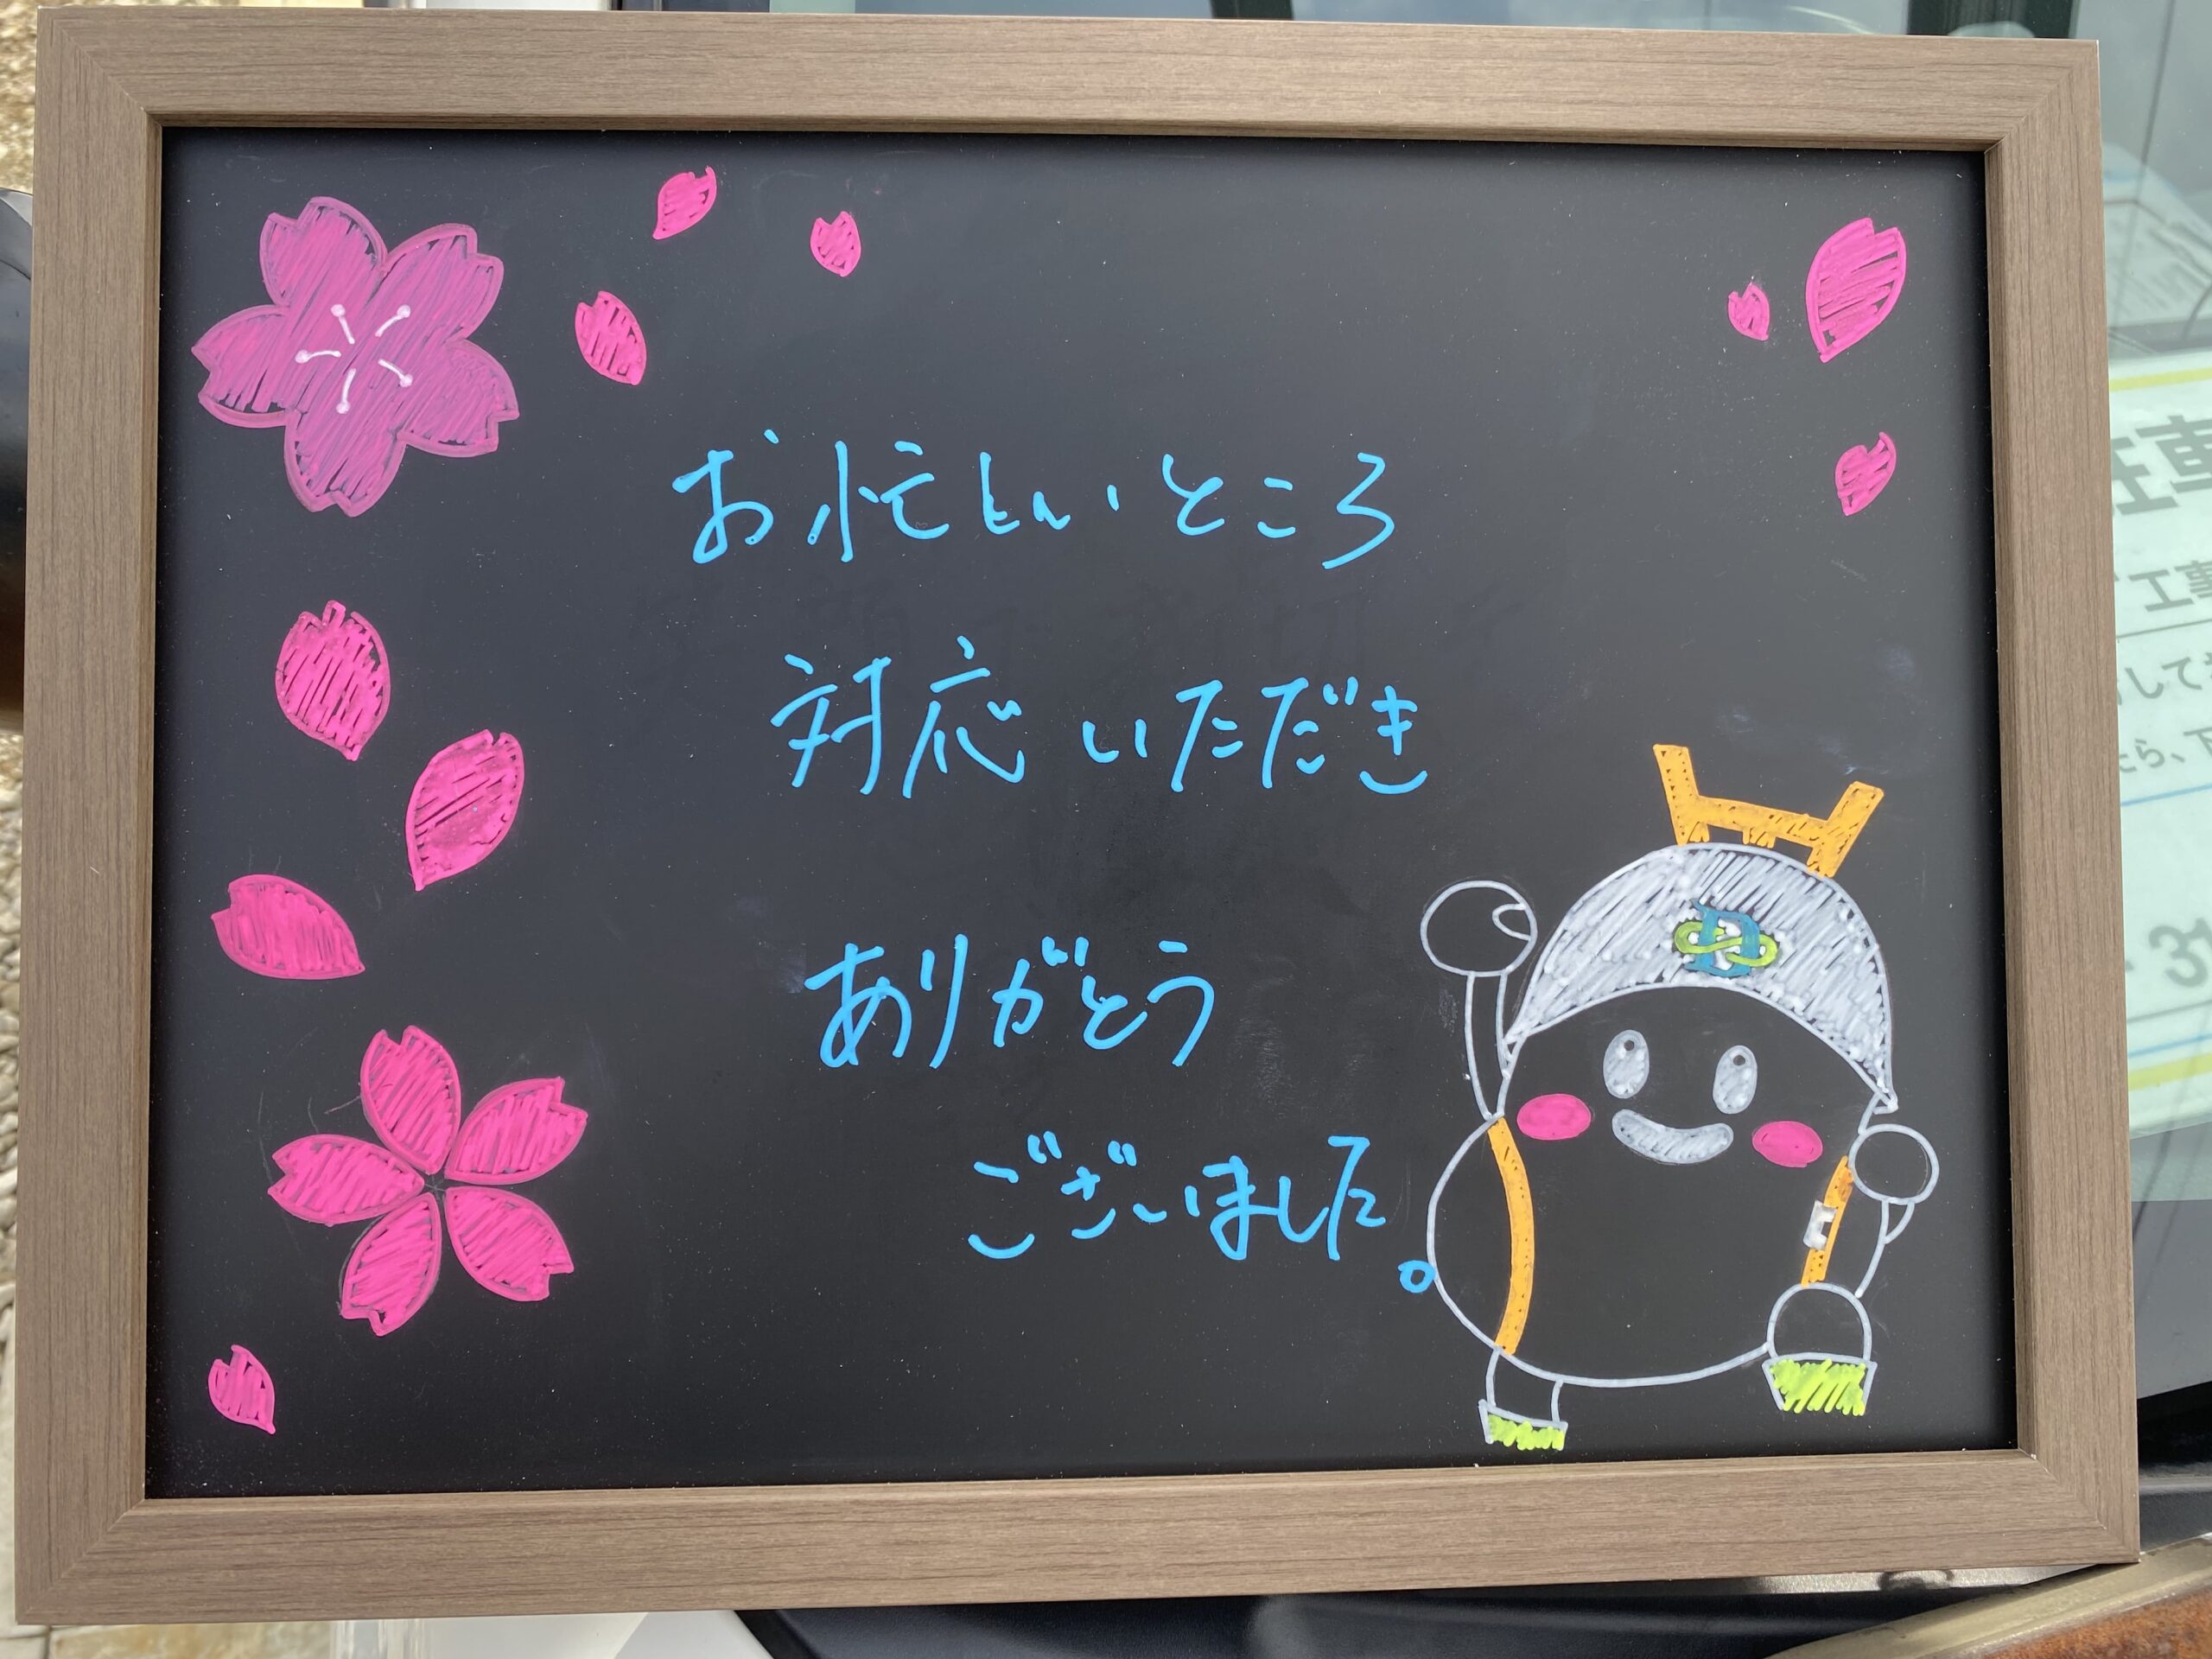 お忙しいところ
対応いただき
ありがとう
ございました。
在車
工事
して
たら、下
31